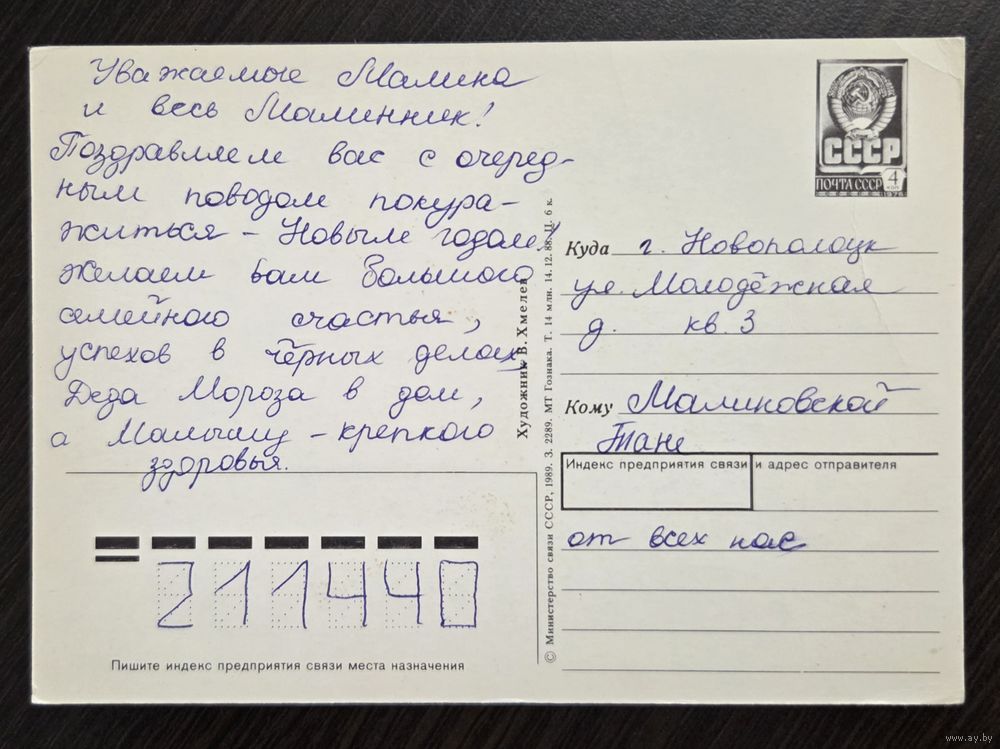 Уважаемые Малина
и весь Малинник!
Поздравляем вас с очеред-
ным поводом покура-
житься - Новым годом!
Желаем вам большого
семейного счастья,
успехов в чёрных делах,
Деда Мороза в дом,
а Малышу - крепкого
здоровья.
СССР
ПОЧТА СССР
4
КОП
1976
Куда г. Новополоцк
ул. Молодёжная
д. кв. 3
Кому Малиновской
Тане
Индекс предприятия связи и адрес отправителя
от всех нас
Художник В. Хмелев
© Министерство связи СССР, 1989. З. 2289. МТ Гознака. Т. 14 млн. 14.12.88. Ц. 6 к.
211440
Пишите индекс предприятия связи места назначения
www.ay.by